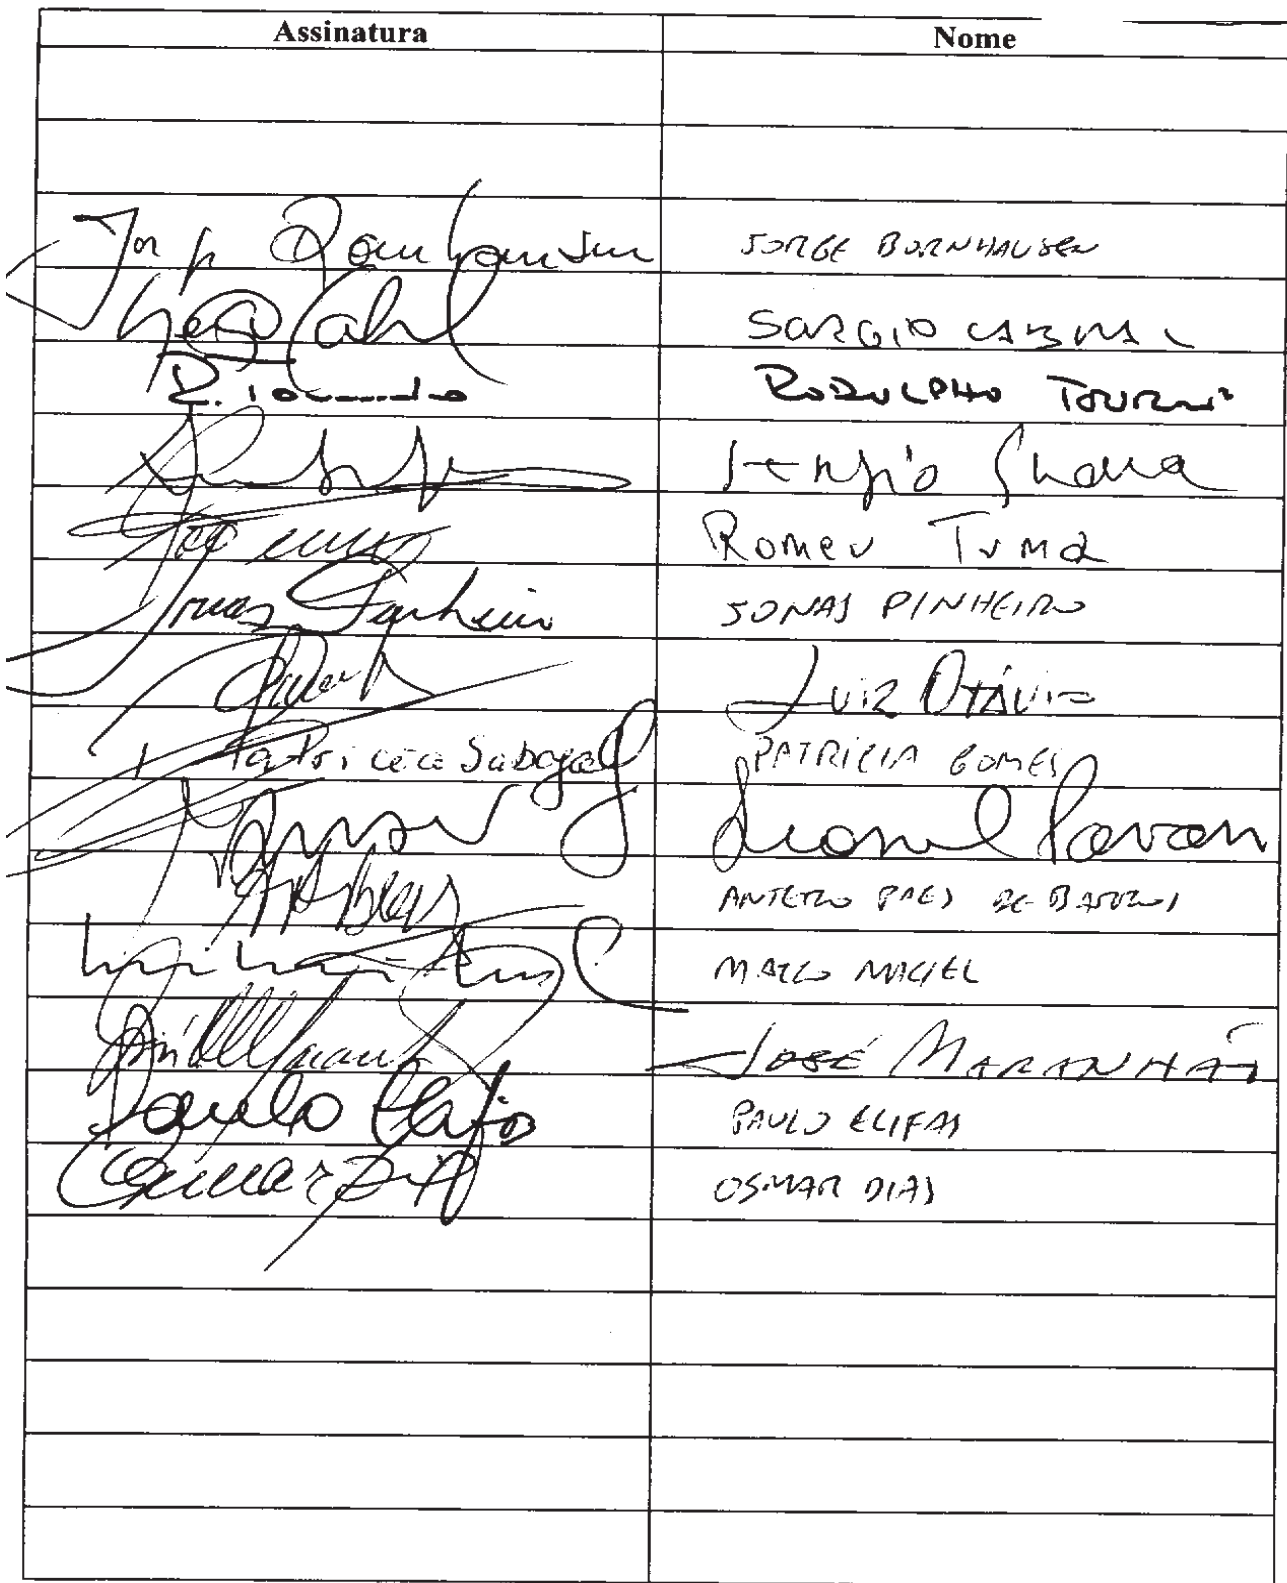 Assinatura Nome
JORGE BORNHAUSEN
SERGIO CABRAL
RODOLPHO TOURINHO
Sergio Guerra
Romeu Tuma
Jonas Pinheiro JONAS PINHEIRO
LUIZ OTÁVIO
Patricia Saboya PATRICIA GOMES
Leonel Pavan
ANTERO PAES DE BARROS
MARCO MACIEL
JOSÉ MARANHÃO
Paulo Elifas PAULO ELIFAS
Osmar Dias OSMAR DIAS